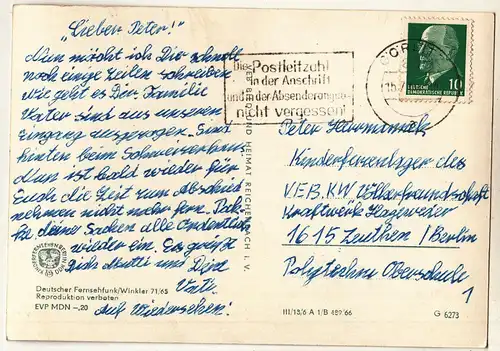 "Lieber Peter!"
Nun möcht ich Dir schnell
noch einige Zeilen schreiben.
Wie geht es Dir. Familie
Vater sind aus unseren
Eingang ausgezogen. Sind
hinten beim
Nun ist bald wieder für
Euch die Zeit zum Abschied
nehmen nicht mehr fern. Pack
Deine Sachen alle Ordentlich
wieder ein. Es grüßt
Dich Mutti und Dein
Vati.
Auf Wiedersehen!
Deutscher Fernsehfunk/Winkler 71/65
Reproduktion verboten
EVP MDN –,20
BILD UND HEIMAT REICHENBACH I. V.
Die Postleitzahl
in der Anschrift
und in der Absenderangabe
nicht vergessen!
GÖRLITZ
10
DEUTSCHE
DEMOKRATISCHE REPUBLIK
Peter
Kinderferienlager des
V.E.B. KW Völkerfreundschaft
Kraftwerk Hagenwerder
1615 Zeuthen / Berlin
Polytechn. Oberschule
1
III/18/6 A 1/B 489/66
G 6273